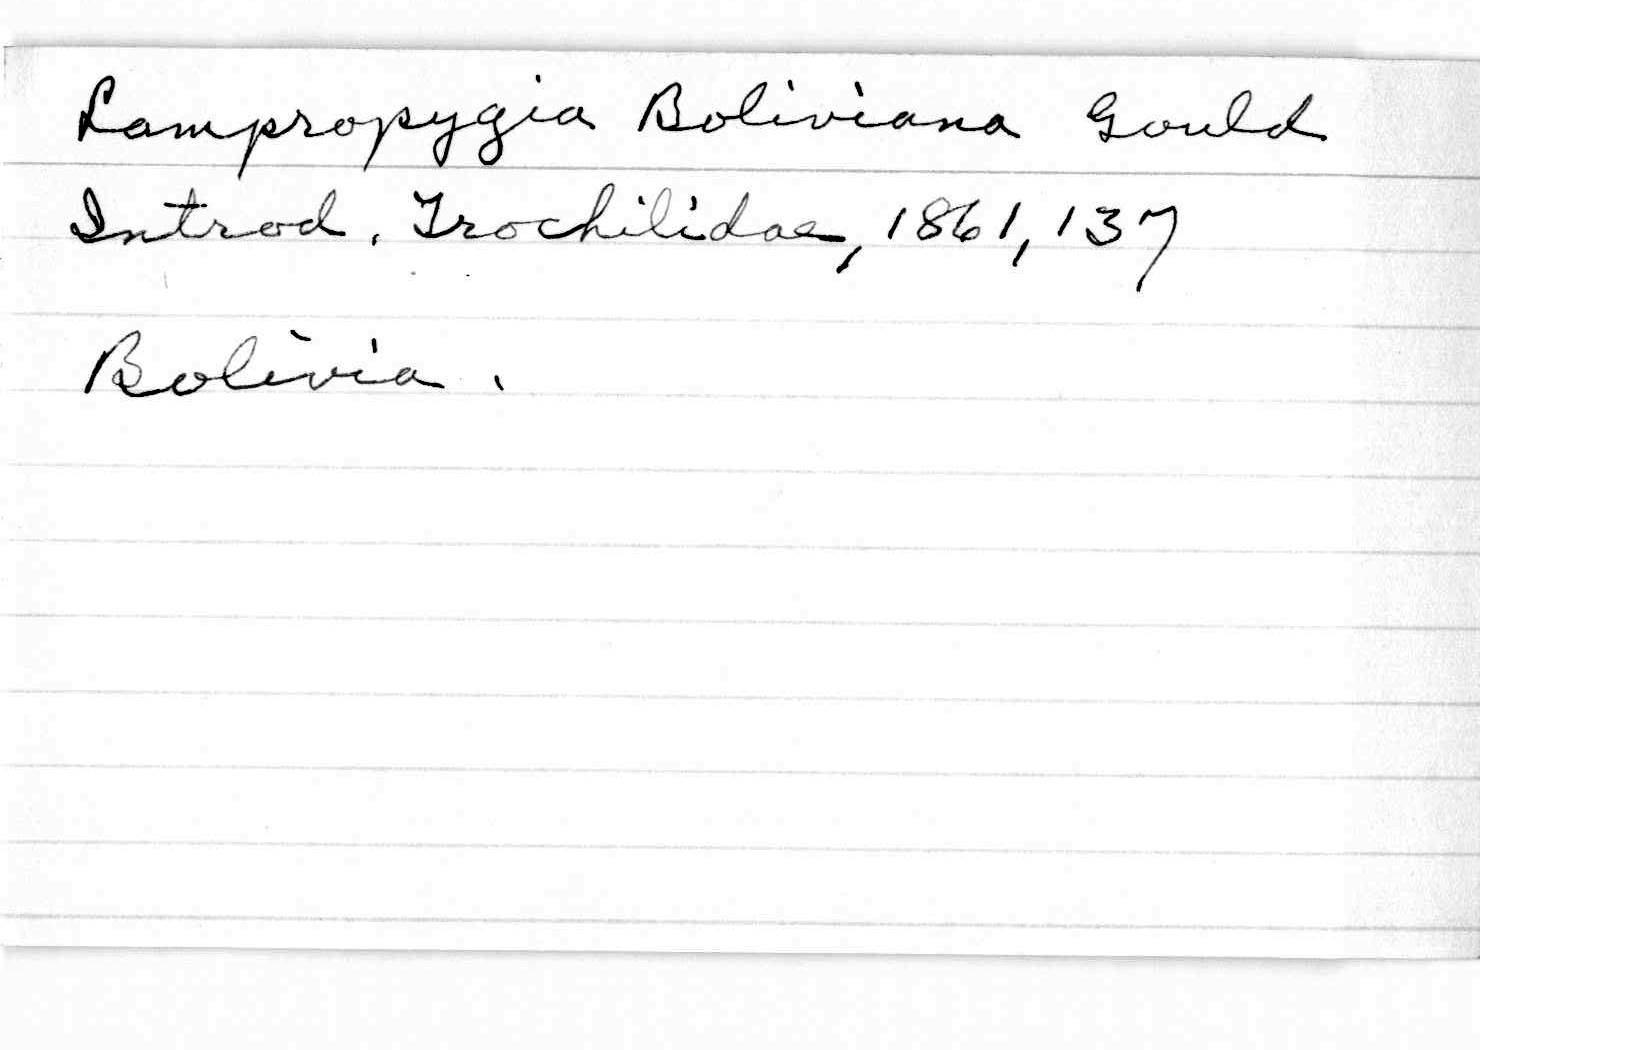 Lampropygia Boliviana Gould
Introd. Trochilidae, 1861, 137
Bolivia.